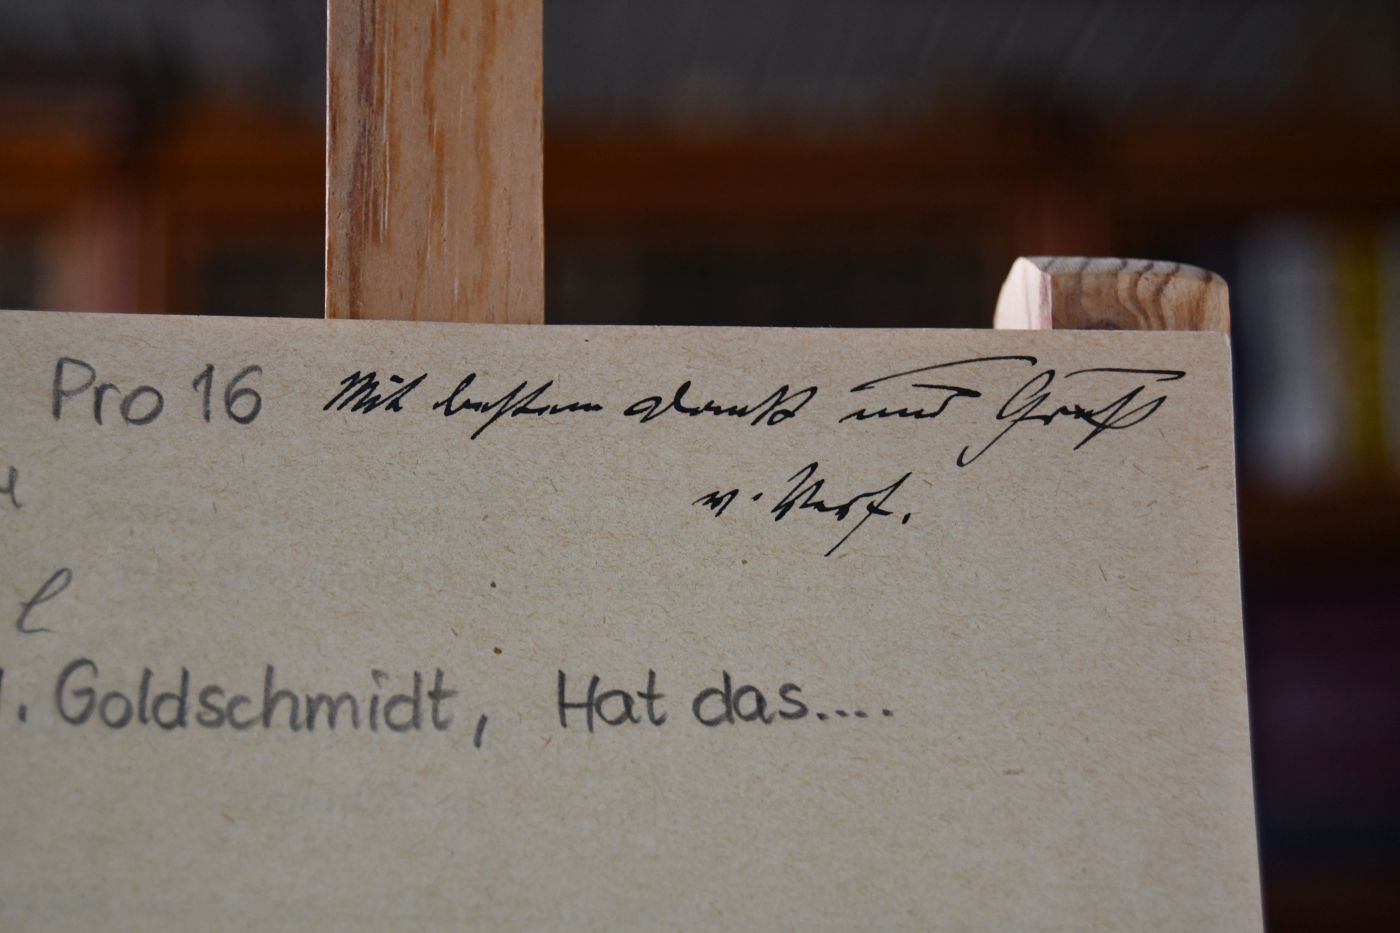 Pro 16 Mit bestem Dank und Gruß
v. Verf.
l
. Goldschmidt, Hat das....